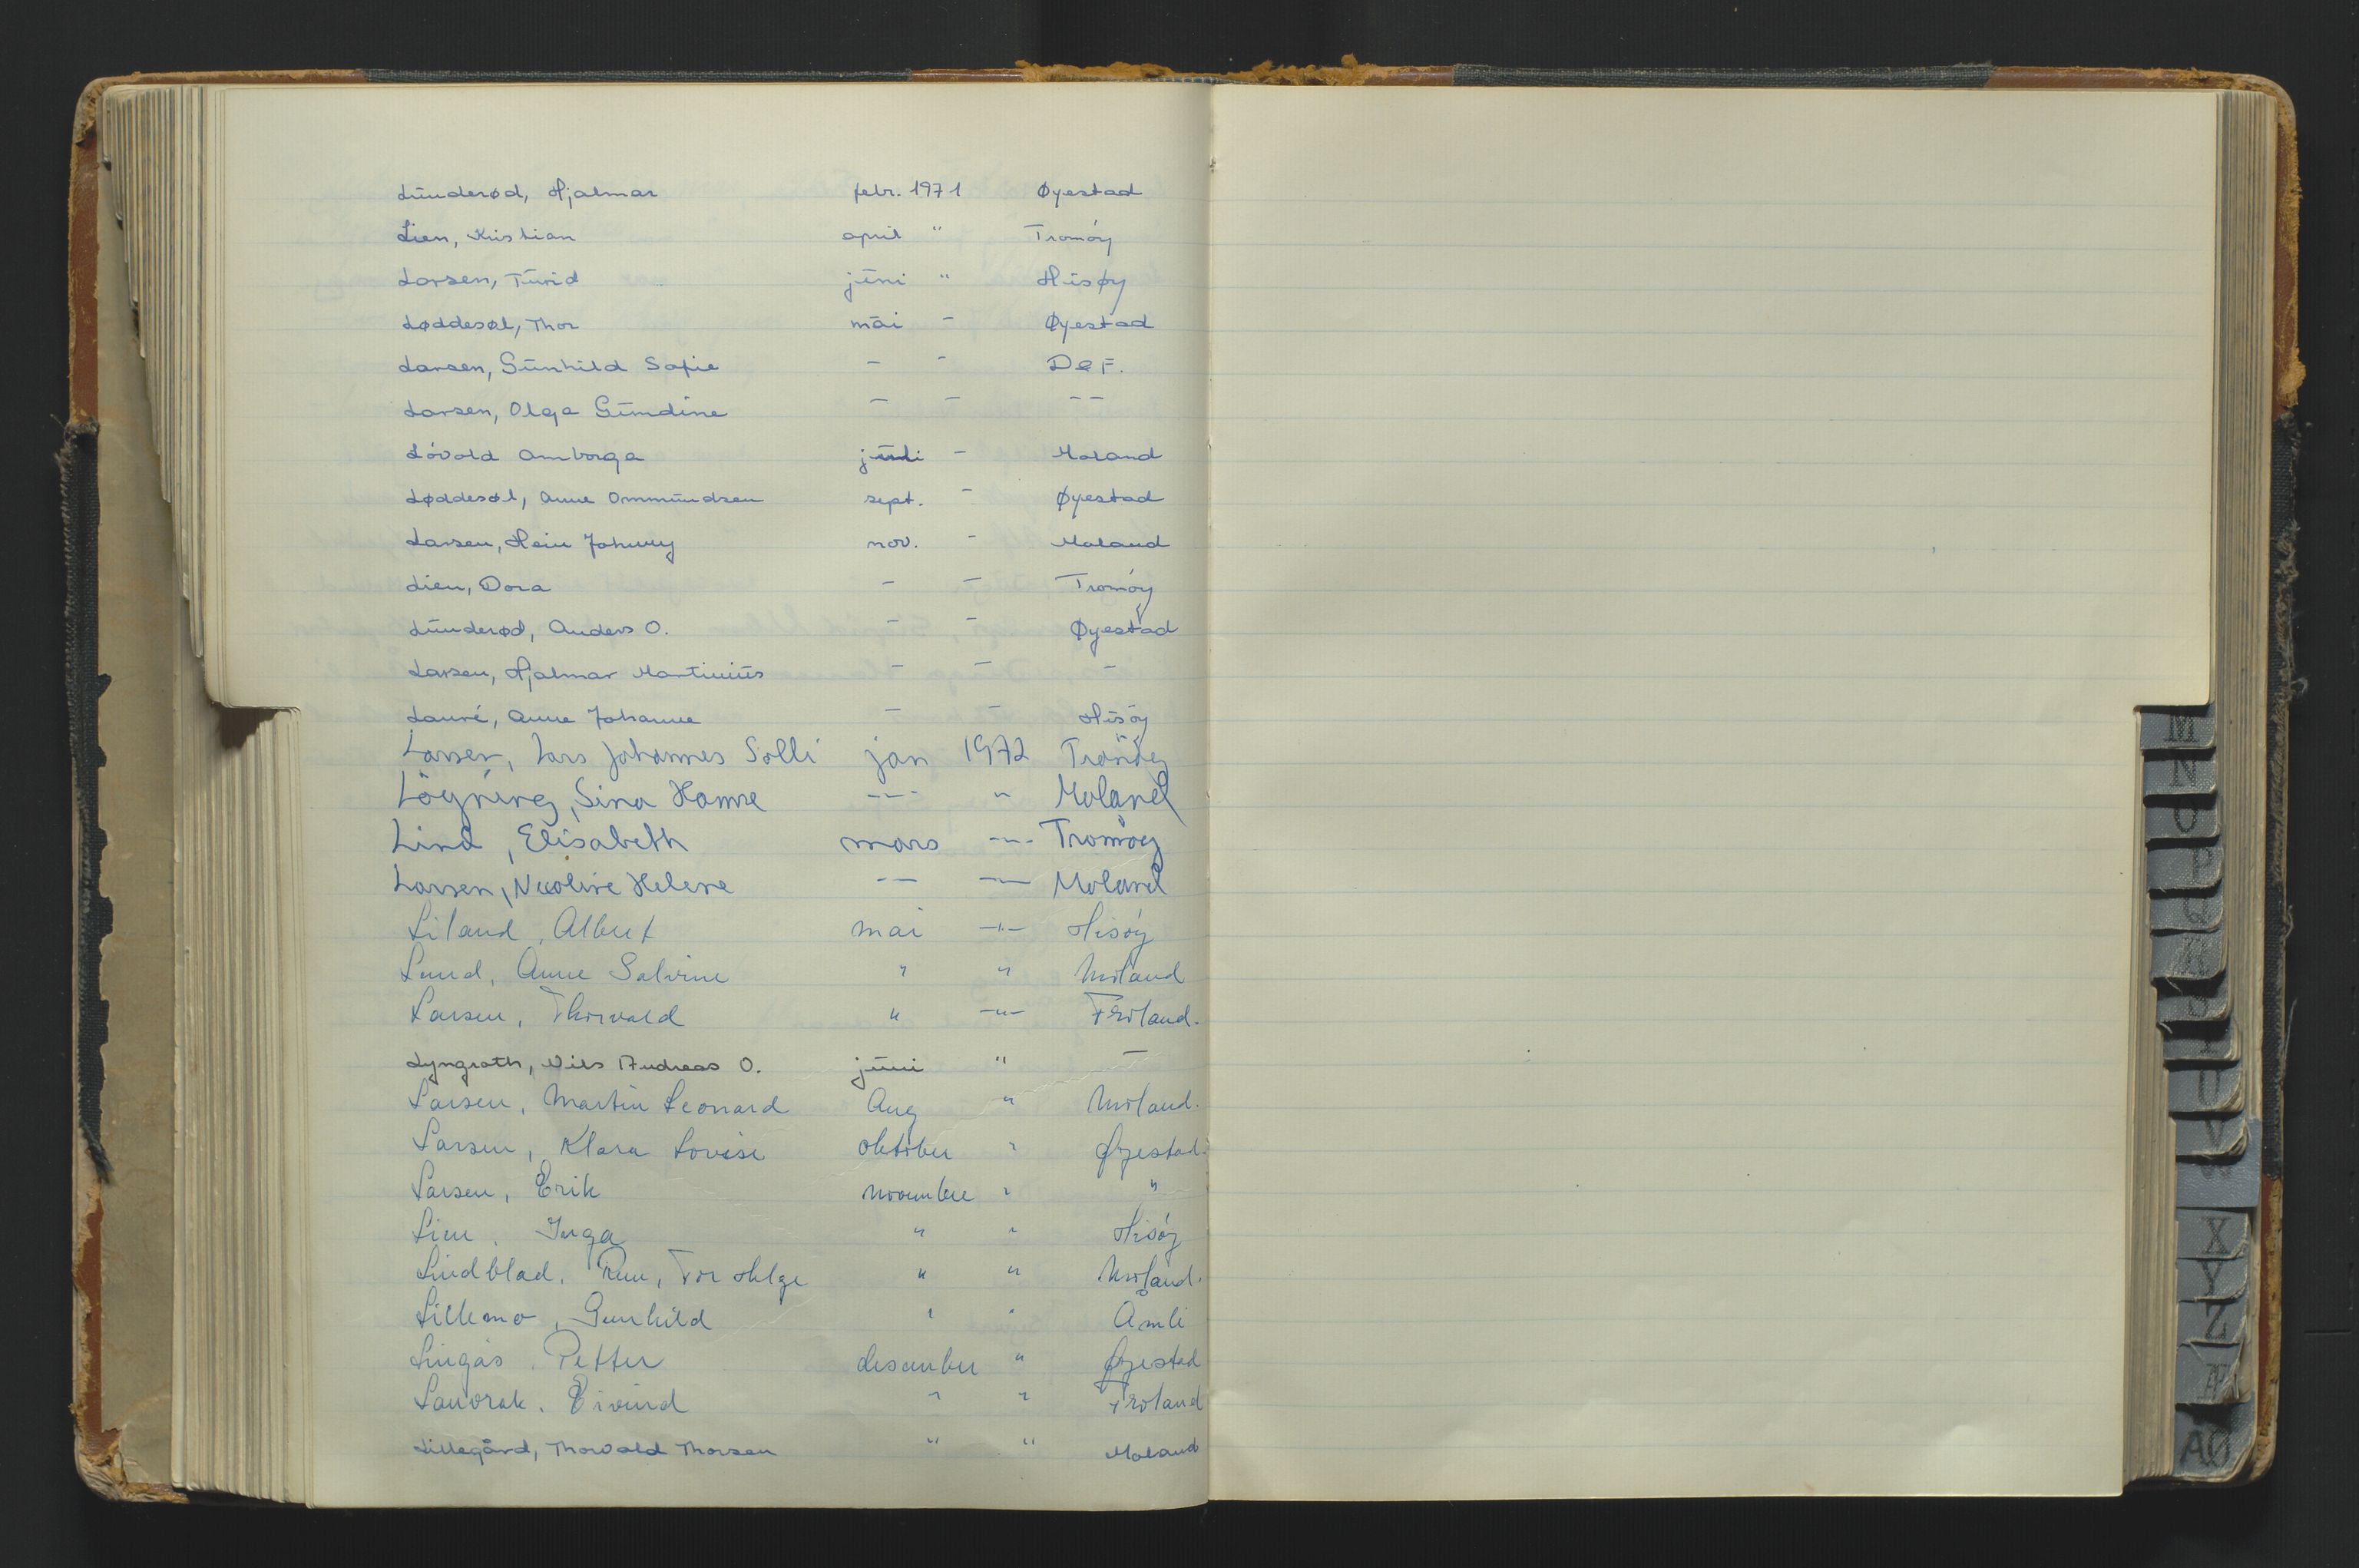 Lunderød, Hjalmar febr. 1971 Øyestad
Lien, Kristian april " Tromöy
Larsen, Turid juni " Hisøy
Løddesøl, Thor mai - Øyestad
Larsen, Gunhild Sofie - - DeF.
Larsen, Olga Gundine - - - -
Lövold Amborga juli - Moland
Løddesøl, Anne Ommundsen sept. - Øyestad
Larsen, Hein Johnny nov. - Moland
Lien, Dora - - Tromöy
Lunderød, Anders O. - - Øyestad
Larsen, Hjalmar Martinius - - -
Lauré, Anne Johanne - - Hisöy
Larsen, Lars Johannes Solli jan 1972 Tromöy
Lögning, Sina Hanne -"- " Moland
Lind, Elisabeth mars -"- Tromöy
Larsen, Nicoline Helene -"- -"- Moland
Liland, Albert mai -"- Hisöy
Lund, Anne Salvine " " Moland
Larsen, Thorvald " -"- Froland.
Lyngroth, Nils Andreas O. juni " -
Larsen, Martin Leonard Aug " Moland.
Larsen, Klara Lovise oktober " Øyestad.
Larsen, Erik november " "
Lien, Inga " " Hisöy
Lindblad, Tor Helge " " Moland.
Lillemo, Gunhild " " Åmli
Lingås, Petter desember " Øyestad
Lauvrak, Eivind " " Froland
Lillegård, Thorvald Thorsen " " Moland
M
N
O
P
Q
R
S
T
U
V
W
X
Y
Z
Æ
AØ